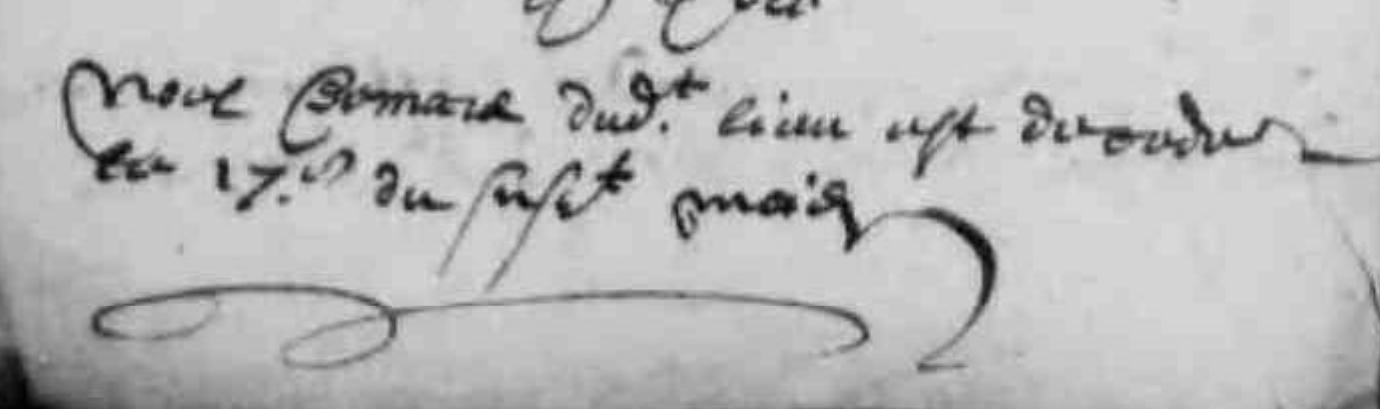 Noel Bomard dud.t lieu est decede
le 17.e du susd.t mois